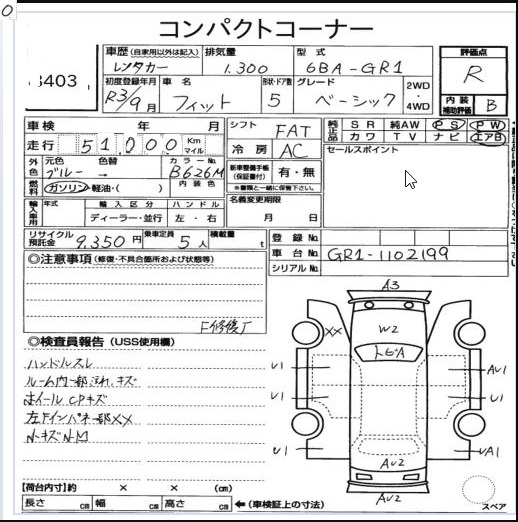 コンパクトコーナー
3403
車歴 (自家用以外は記入) 排気量 型式
レンタカー 1.300 6BA-GR1
初度登録年月 車名 形状・ドア数 グレード
R3/9月 フィット 5 ベーシック 2WD・4WD
評価点
R
内装補助評価 B
車検 年 月
走行 51,000 Km マイル
シフト FAT
冷房 AC
純正品 SR 純AW PS PW
カワ TV ナビ エアB
セールスポイント
外色 元色 色替 カラーNo.
ブルー → B626M
燃料 ガソリン・軽油・( ) 内装色
新車整備手帳(保証書付) 有・無
※書類と一緒に保管下さい。
輸入車用 年式 輸入区分 ハンドル
ディーラー・並行 左・右
名義変更期限
月 日
リサイクル預託金 9,350円 乗車定員 5人 積載量 t
登録No.
車台No. GR1-1102199
シリアルNo.
◎注意事項 (修復・不具合箇所および状態等)
F修復歴
◎検査員報告 (USS使用欄)
ハンドルスレ
ルーム内一部汚れ、キズ
ホイールCPキズ
左Fインパネ一部XX
小キズ小凹
A3
XX
W2
トビA
U1
AU1
U1
U1
U1
UA1
AU2
AU2
スペア
【荷台内寸】約 × × (cm)
長さ cm 幅 cm 高さ cm ←(車検証上の寸法)